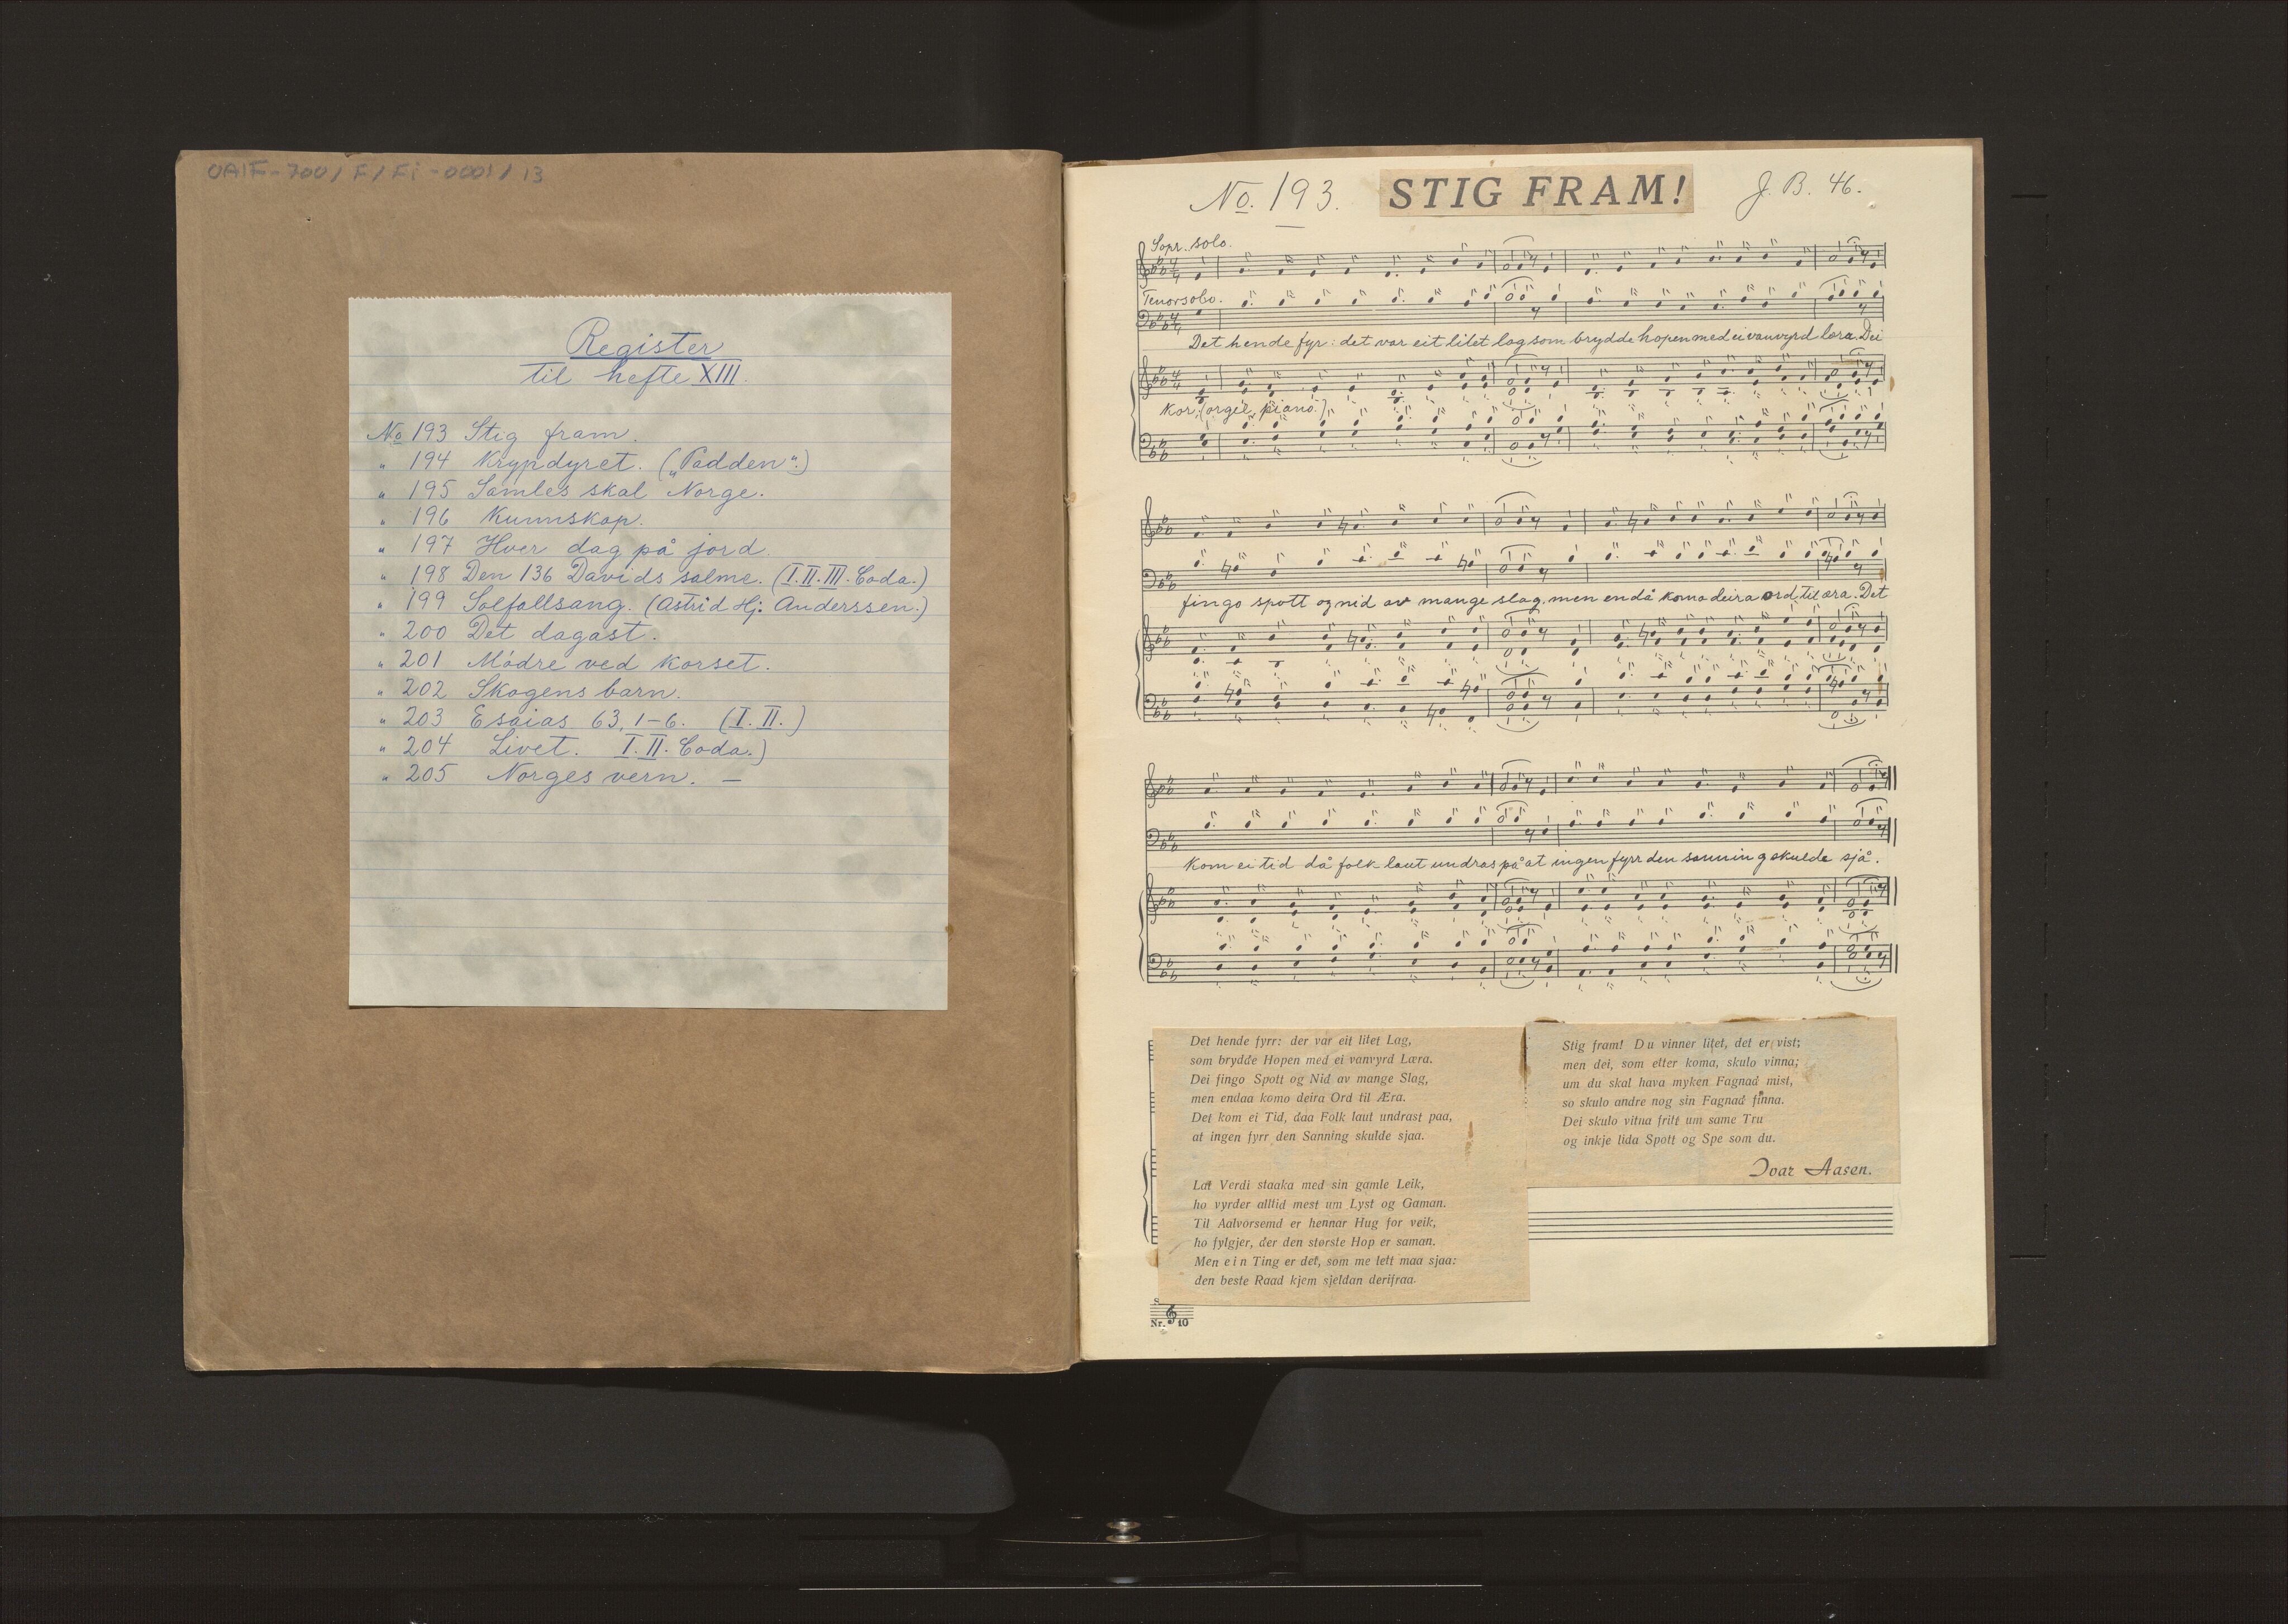 OAIF-700/F/Fi-0001/13
Register
til hefte XIII.
No 193 Stig fram.
" 194 Krypdyret. („Padden".)
" 195 Samles skal Norge.
" 196 Kunnskap.
" 197 Hver dag på jord.
" 198 Den 136 Davids salme. (I.II.III. Coda.)
" 199 Solfallsang. (Astrid Hj. Anderssen.)
" 200 Det dagast.
" 201 Mødre ved korset.
" 202 Skogens barn.
" 203 Esaias 63, 1-6. (I. II.)
" 204 Livet. I. II. Coda.)
" 205 Norges vern. —
No. 193. STIG FRAM! J. B. 46.
Sopr. solo.
Tenorsolo.
Det hende fyr: det var eit litet lag som brydde hopen med ei vanvyrd læra. Dei
Kor, (orgel, piano.)
fingo spott og nid av mange slag, men endå komo deira ord til æra. Det
kom ei tid då folk laut undras på at ingen fyrr den sanning skulde sjå.
Det hende fyrr: der var eit litet Lag,
som brydde Hopen med ei vanvyrd Læra.
Dei fingo Spott og Nid av mange Slag,
men endaa komo deira Ord til Æra.
Det kom ei Tid, daa Folk laut undrast paa,
at ingen fyrr den Sanning skulde sjaa.
Lat Verdi staaka med sin gamle Leik,
ho vyrder alltid mest um Lyst og Gaman.
Til Aalvorsemd er hennar Hug for veik,
ho fylgjer, der den største Hop er saman.
Men ein Ting er det, som me lett maa sjaa:
den beste Raad kjem sjeldan derifraa.
Stig fram! Du vinner litet, det er vist;
men dei, som etter koma, skulo vinna;
um du skal hava myken Fagnad mist,
so skulo andre nog sin Fagnad finna.
Dei skulo vitna fritt um same Tru
og inkje lida Spott og Spe som du.
Ivar Aasen.
S
Nr. 10